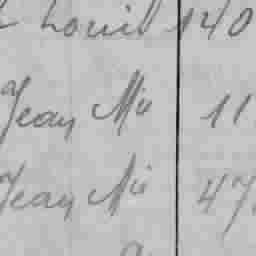 Louis 140
Jean Mie 11
Jean Mie 47